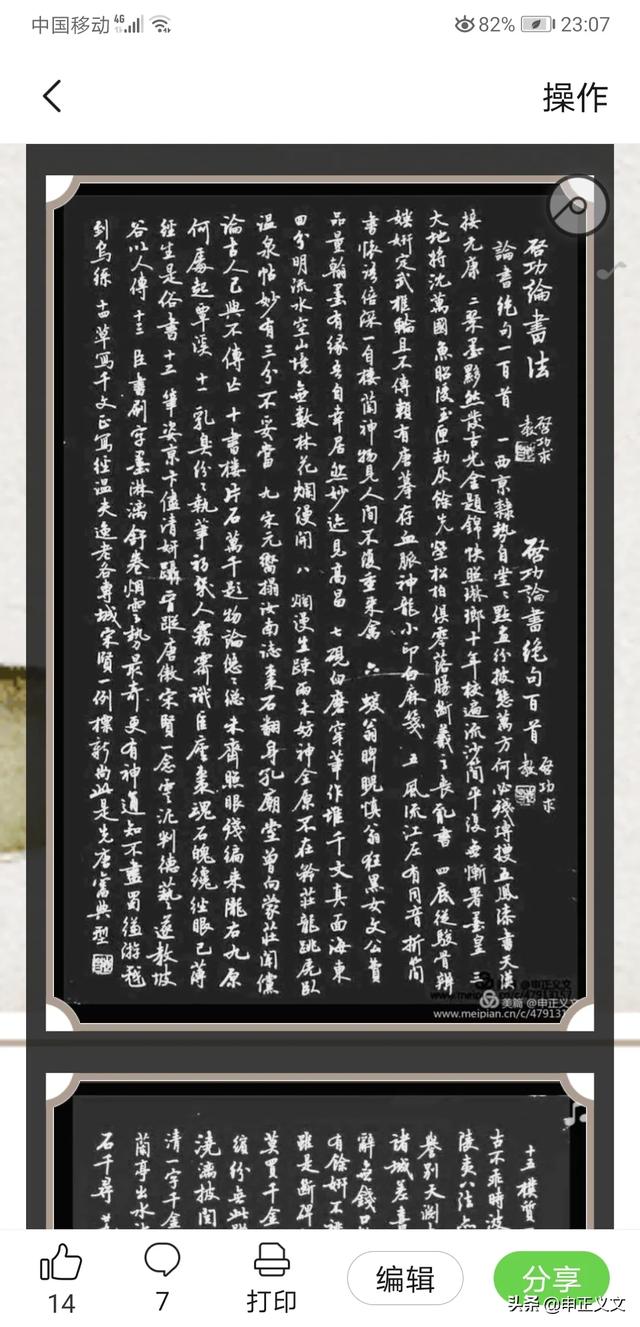 中国移动 4G
82% 23:07
操作
啓功論書法 啓功求教
啓功論書絕句百首 啓功求教
論書絕句一百首 一 西京隸勢自堂々點畫紛披態萬方何必殘磚搜五鳳漆書天漢
接元康 二 翠墨黟然發古光金題錦帙照琳瑯十年校遍流沙簡平復無慚署墨皇 三
大地將沈萬國魚昭陵玉匣劫灰餘先塋松柏俱零落腸斷羲之喪亂書 四 底從駿骨辨
媸妍定武椎輪且不傳賴有唐摹存血脈神龍小印白麻箋 五 風流江左有同音折簡
書懷語倍深一自樓蘭神物見人間不復重來禽 六 蝯翁睥睨慎翁狂黑女文公費
品量翰墨有緣吾自幸居然妙迹見高昌 七 硯臼磨穿筆作堆千文真面海東
回分明流水空山境無數林花爛漫開 八 爛漫生疎兩未妨神全原不在矜莊龍跳虎臥
溫泉帖妙有三分不妥當 九 宋元嚮搨汝南誌棗石翻身孔廟堂曾向蒙莊聞儻
論古人已與不傳亡 十 書樓片石萬千題物論悠々總未齊照眼殘編來隴右九原
何處起覃溪 十一 乳臭紛々執筆初幾人霧霽識匡廬棗魂石魄纔經眼已薄
經生是俗書 十二 筆姿京卞儘清妍躡晉踪唐傲宋賢一念雲泥判德藝遂教坡
谷以人傳 十三 臣書刷字墨淋漓舒卷烟雲勢最奇更有神通知不盡蜀縑游戲
到烏絲 十四 草寫千文正寫經溫夫逸老各專城宋賢一例標新尚此是先唐舊典型
美篇 @申正义文
www.meipian.cn/c/479131
十五 樸質
古不乖時波
陵夷八法
譽別天淵
諸城差喜
辭無錢
有餘妍不
雖是斷碑
莫買千金
繽紛無此
澆漓披閱
清一字千金
蘭亭出水
石千尋
14
7
打印
编辑
分享
头条 @申正义文